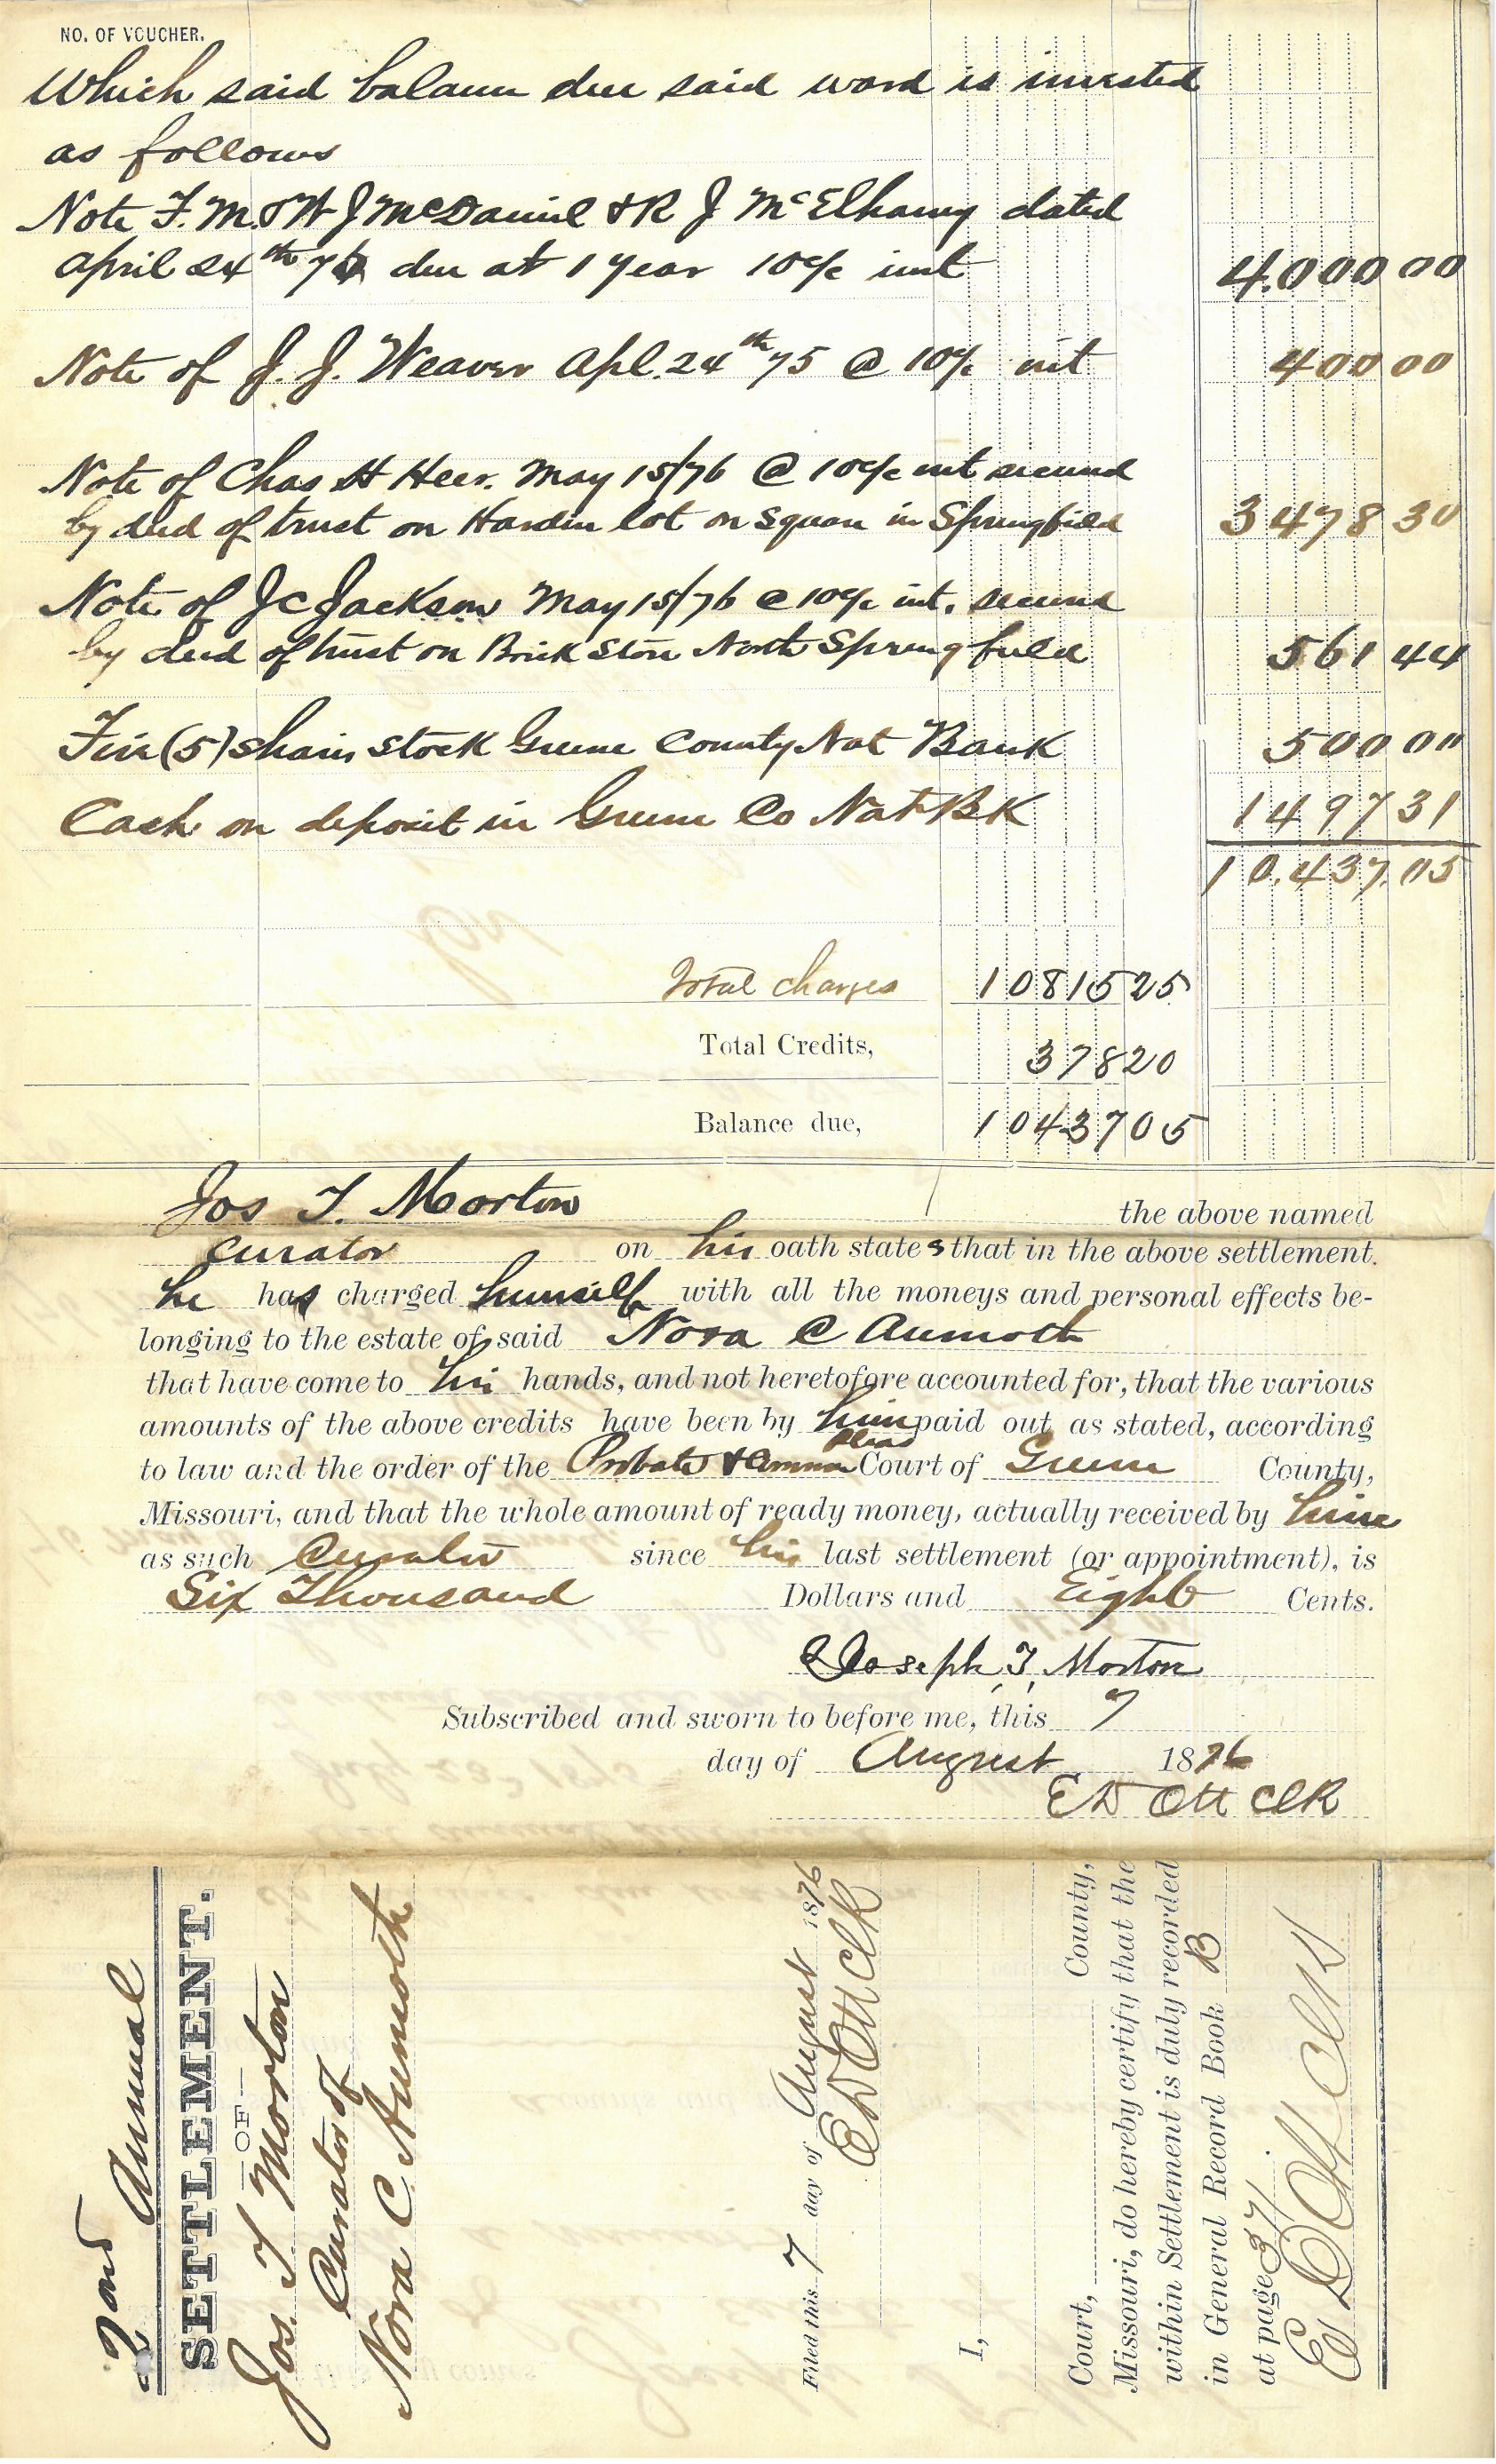 NO. OF VOUCHER.
Which said balance due said ward is invested
as follows
Note F. M. & W J McDaniel & R J McElhany dated
April 24th 76 due at 1 year 10% int 4.000 00
Note of J. J. Weaver Apl. 24th 75 @ 10% int 400 00
Note of Chas H Heer. May 15/76 @ 10% int secured
by deed of trust on Hardin lot on Square in Springfield 3478 30
Note of J C Jackson May 15/76 @ 10% int. secured
by deed of trust on Brick Store North Springfield 561 44
Five (5) shares stock Greene County Nat Bank 500 00
Cash on deposit in Greene Co Nat BK 1497 31
10.437.05
Total charges 10815 25
Total Credits, 378 20
Balance due, 10437 05
Jos T. Morton the above named
Curator on his oath states that in the above settlement.
he has charged himself with all the moneys and personal effects be-
longing to the estate of said Nora C Aumoth
that have come to his hands, and not heretofore accounted for, that the various
amounts of the above credits have been by him paid out as stated, according
to law and the order of the Probate & Common Pleas Court of Greene County,
Missouri, and that the whole amount of ready money, actually received by him
as such Curator since his last settlement (or appointment), is
Six Thousand Dollars and Eight Cents.
Joseph T, Morton
Subscribed and sworn to before me, this 7
day of August 1876
E D Ott Clk
2ond Annual
SETTLEMENT.
—OF—
Jos. T Morton
Curator of
Nora C Aumoth
Filed this 7 day of August 1876
E D Ott Clk
I,
Court, County,
Missouri, do hereby certify that the
within Settlement is duly recorded
in General Record Book B
at page 371
E D Ott Clk